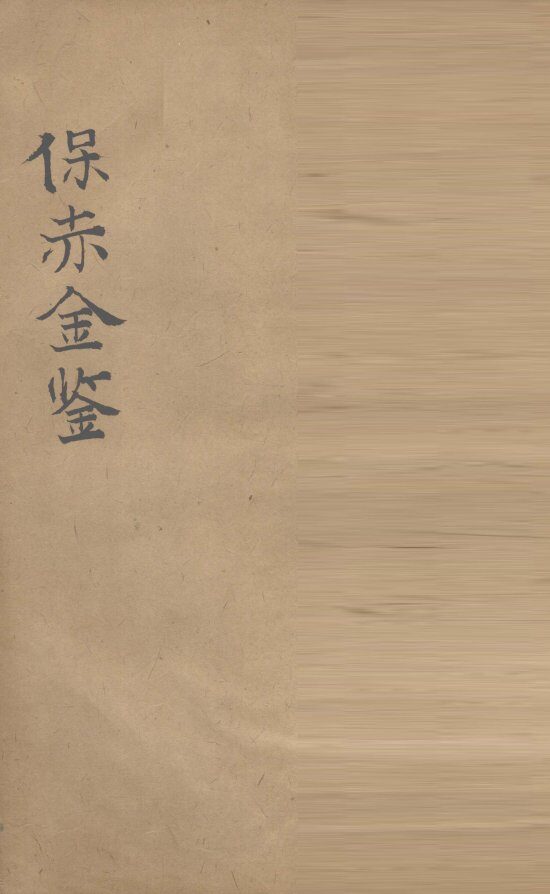 保赤金鉴